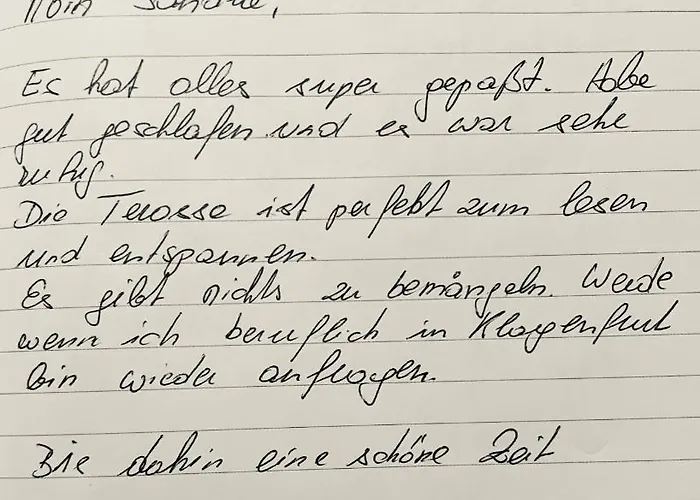 Moin
Es hat alles super gepaßt. Habe
gut geschlafen und es war sehr
ruhig.
Die Terasse ist perfekt zum lesen
und entspannen.
Es gibt nichts zu bemängeln. Werde
wenn ich beruflich in Klagenfurt
bin wieder anfragen.
Bis dahin eine schöne Zeit